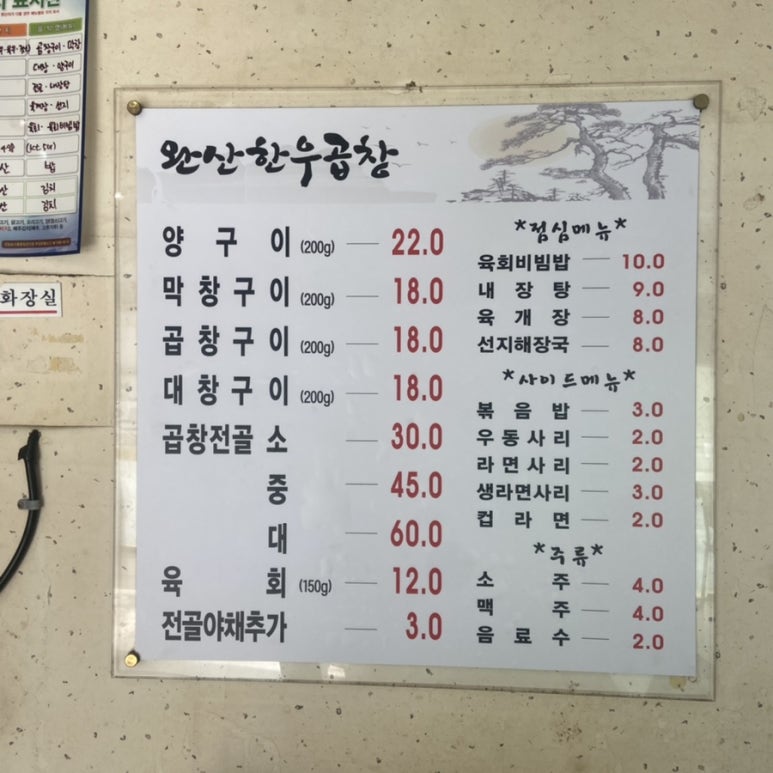 완산한우곱창
양구이 (200g) — 22.0
막창구이 (200g) — 18.0
곱창구이 (200g) — 18.0
대창구이 (200g) — 18.0
곱창전골 소 — 30.0
중 — 45.0
대 — 60.0
육회 (150g) — 12.0
전골야채추가 — 3.0
*점심메뉴*
육회비빔밥 — 10.0
내장탕 — 9.0
육개장 — 8.0
선지해장국 — 8.0
*사이드메뉴*
볶음밥 — 3.0
우동사리 — 2.0
라면사리 — 2.0
생라면사리 — 3.0
컵라면 — 2.0
*주류*
소주 — 4.0
맥주 — 4.0
음료수 — 2.0
화장실
곱창구이·막창
대창·양구이
육개장·선지
육회·육회비빔밥
김치
김치